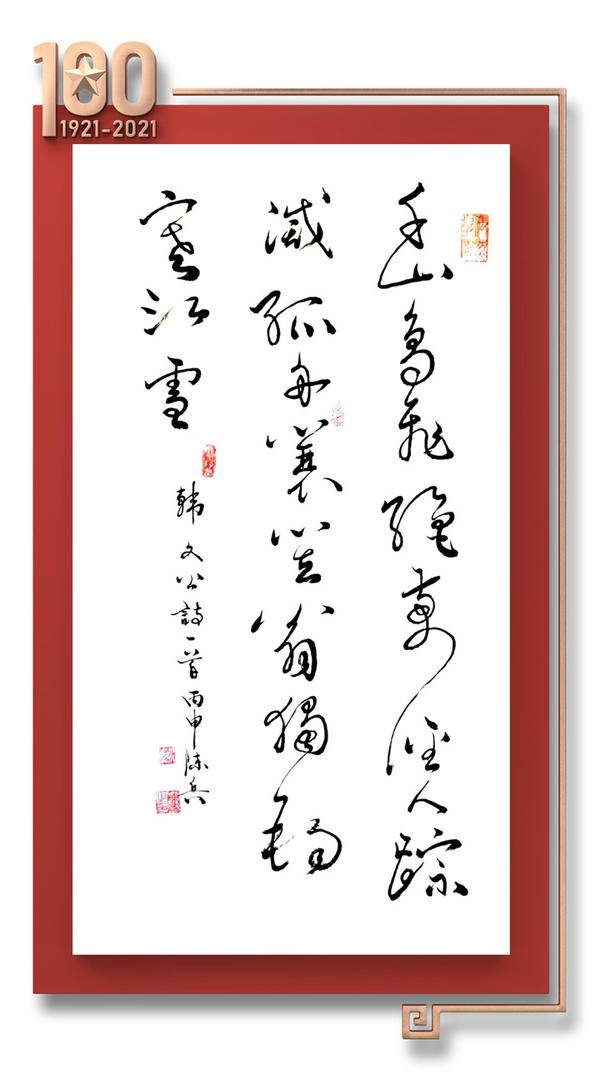 100
1921-2021
千山鳥飛絕萬徑人踪
滅孤舟蓑笠翁獨釣
寒江雪
韓文公詩一首丙申陳兵